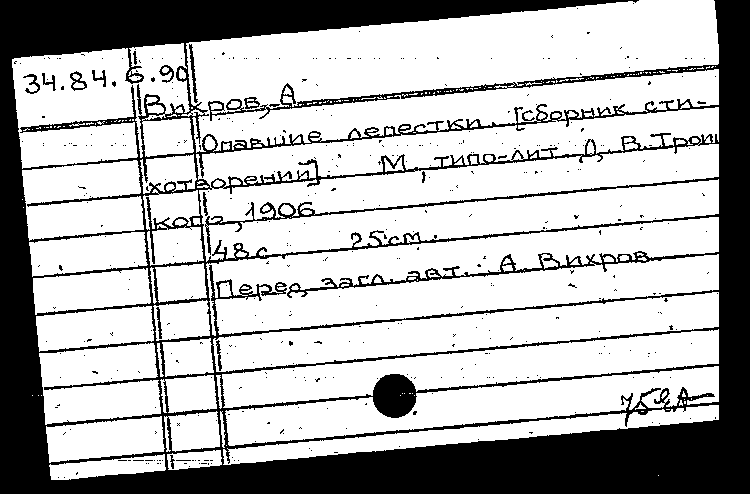 34.84.6.90
Вихров, А
Опавшие лепестки. [сборник сти-
хотворений]. М., типо-лит. Д, В. Троиц
кого, 1906
48 с. 25 см.
Перед загл. авт.: А. Вихров